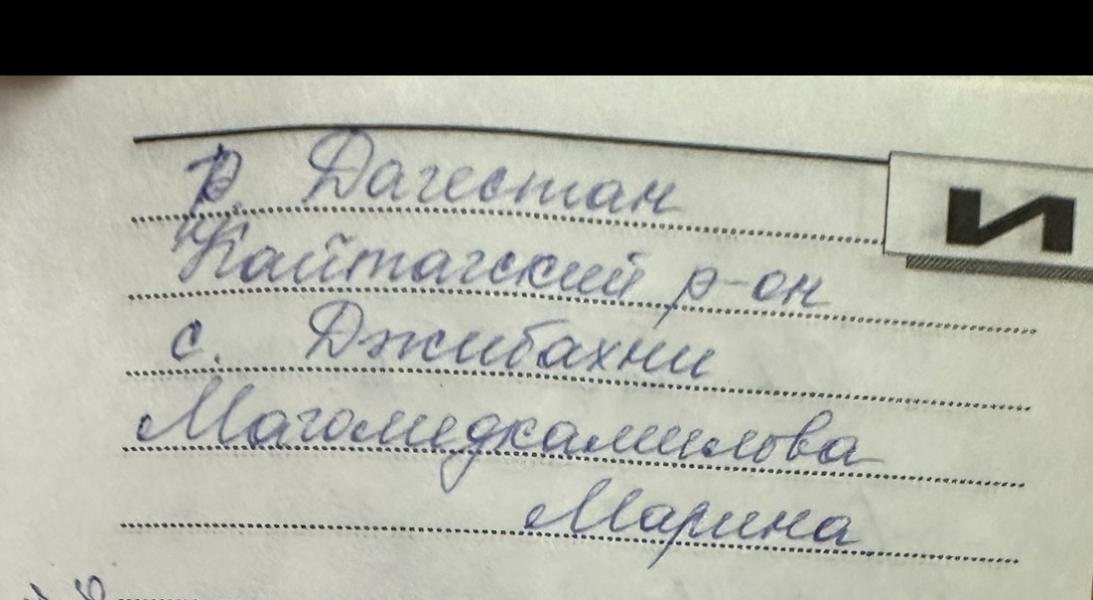 р. Дагестан
И
Кайтагский р-он
с. Джибахни
Магомедкамилова
Марина